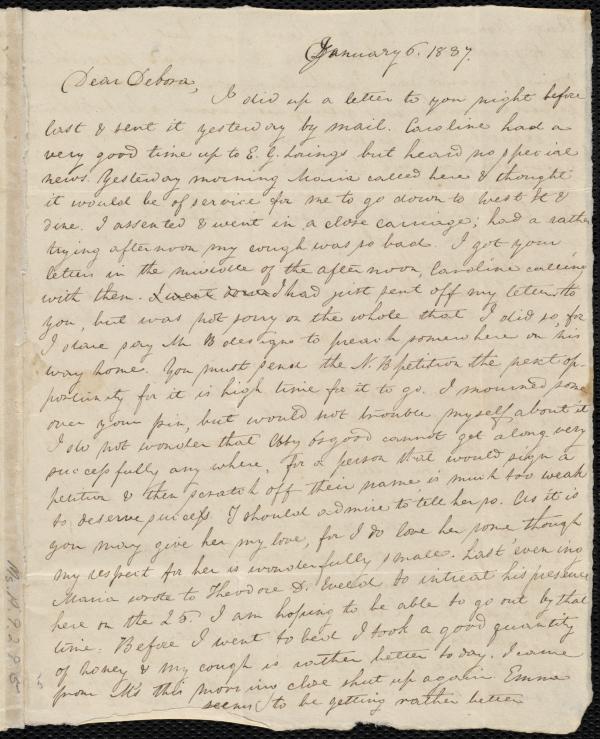 January 6. 1837.
Dear Debora,
I did up a letter to you night before
last & sent it yesterday by mail. Caroline had a
very good time up to E. G. Lorings but heard no special
news. Yesterday morning Maria called here & thought
it would be of service for me to go down to West St &
dine. I assented & went in a close carriage; had a rather
trying afternoon my cough was so bad. I got your
letters in the middle of the afternoon, Caroline calling
with them. I went down I had just sent off my letter to
you, but was not sorry on the whole that I did so, for
I dare say Mr B designs to preach somewhere on his
way home. You must send the N. B petition the next op-
portunity for it is high time for it to go. I mourned some
over your pin, but would not trouble myself about it
I do not wonder that Abby Osgood cannot get along very
successfully any where. For a person that would sign a
petition & then scratch off their name is much too weak
to deserve success. I should admire to tell her so. As it is
you may give her my love, for I do love her some though
my respect for her is wonderfully small. Last evening
Maria wrote to Theodore D. Weld to intreat his presence
here on the 25. I am hoping to be able to go out by that
time. Before I went to bed I took a good quantity
of honey & my cough is rather better today. I came
from M's this morning close shut up again. Emma
seems to be getting rather better
Ms. A. 9.2.9.5